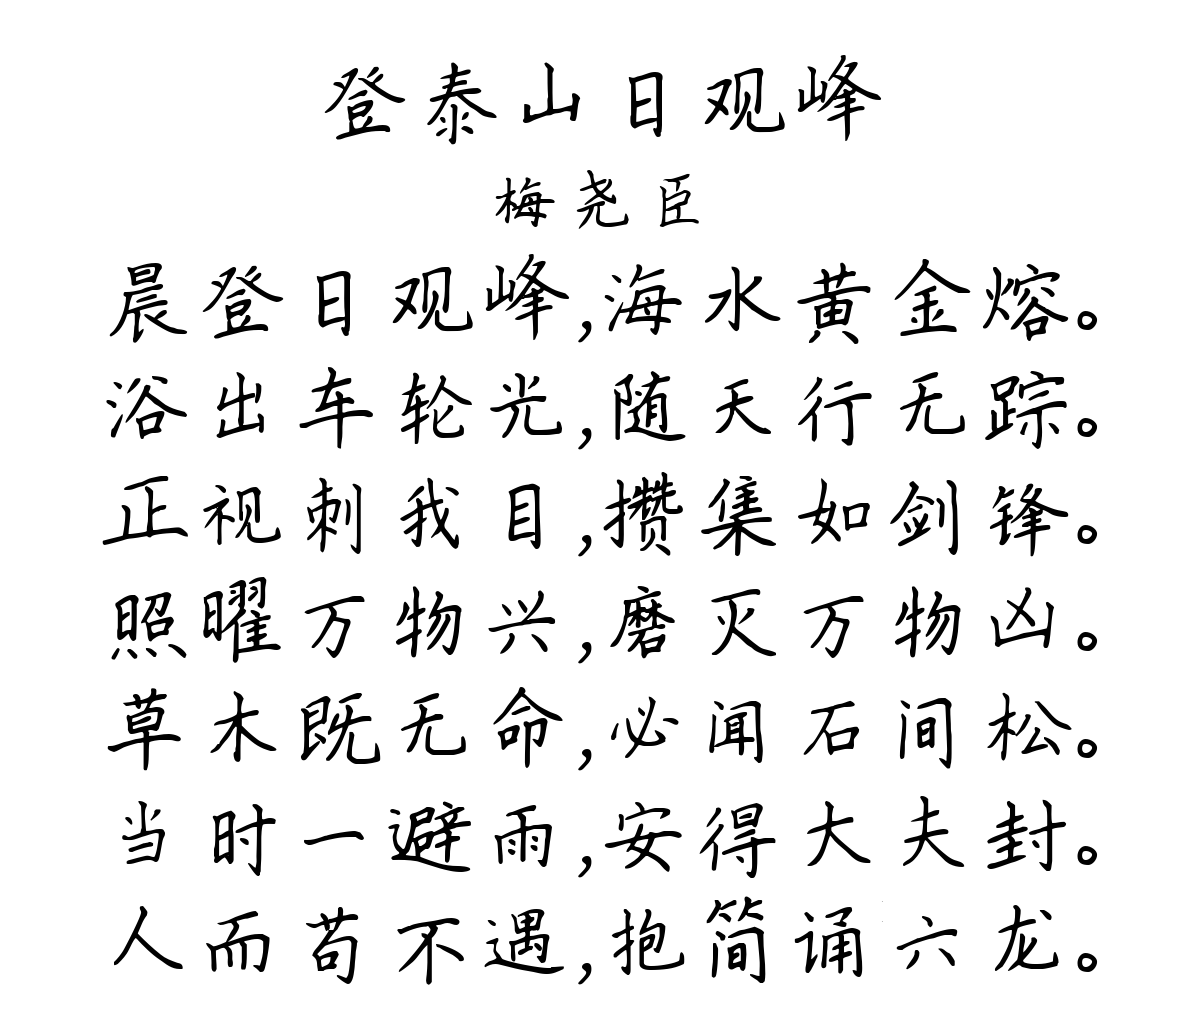 登泰山日观峰
梅尧臣
晨登日观峰,海水黄金熔。
浴出车轮光,随天行无踪。
正视刺我目,攒集如剑锋。
照曜万物兴,磨灭万物凶。
草木既无命,必闻石间松。
当时一避雨,安得大夫封。
人而苟不遇,抱简诵六龙。